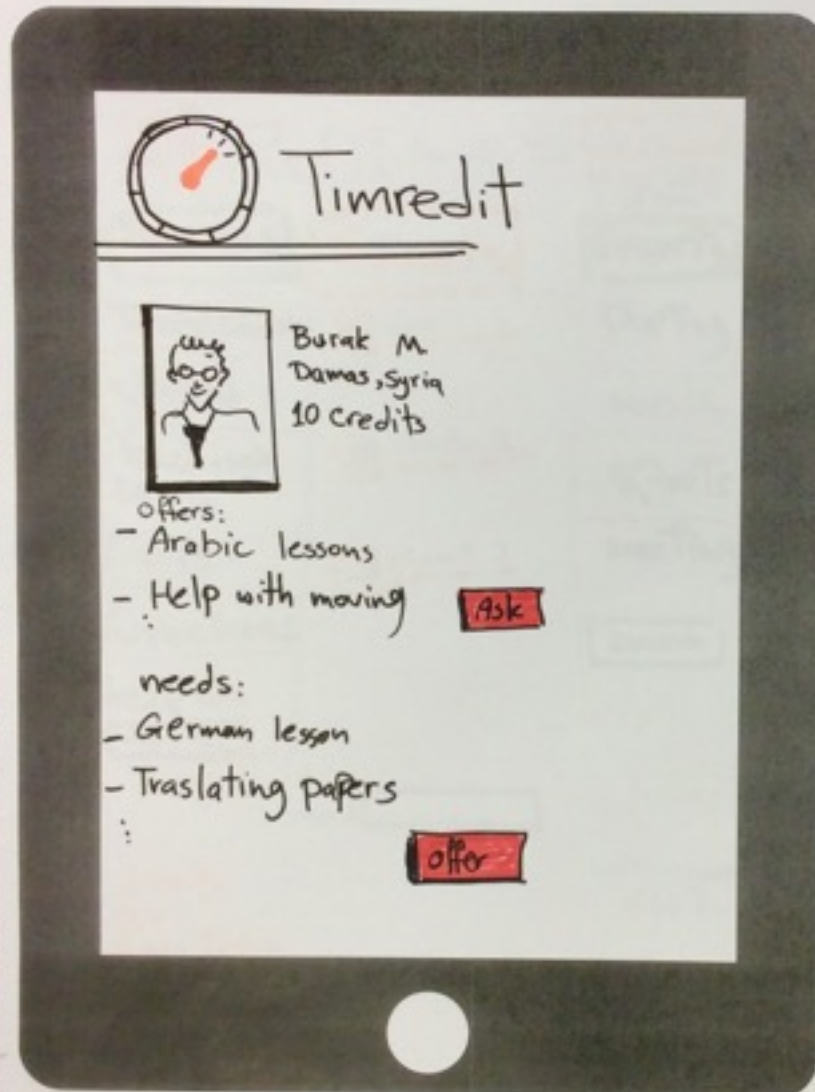 Timredit
Burak M
Damas, Syria
10 Credits
offers:
- Arabic lessons
- Help with moving
:
Ask
needs:
- German lesson
- Traslating papers
:
offer